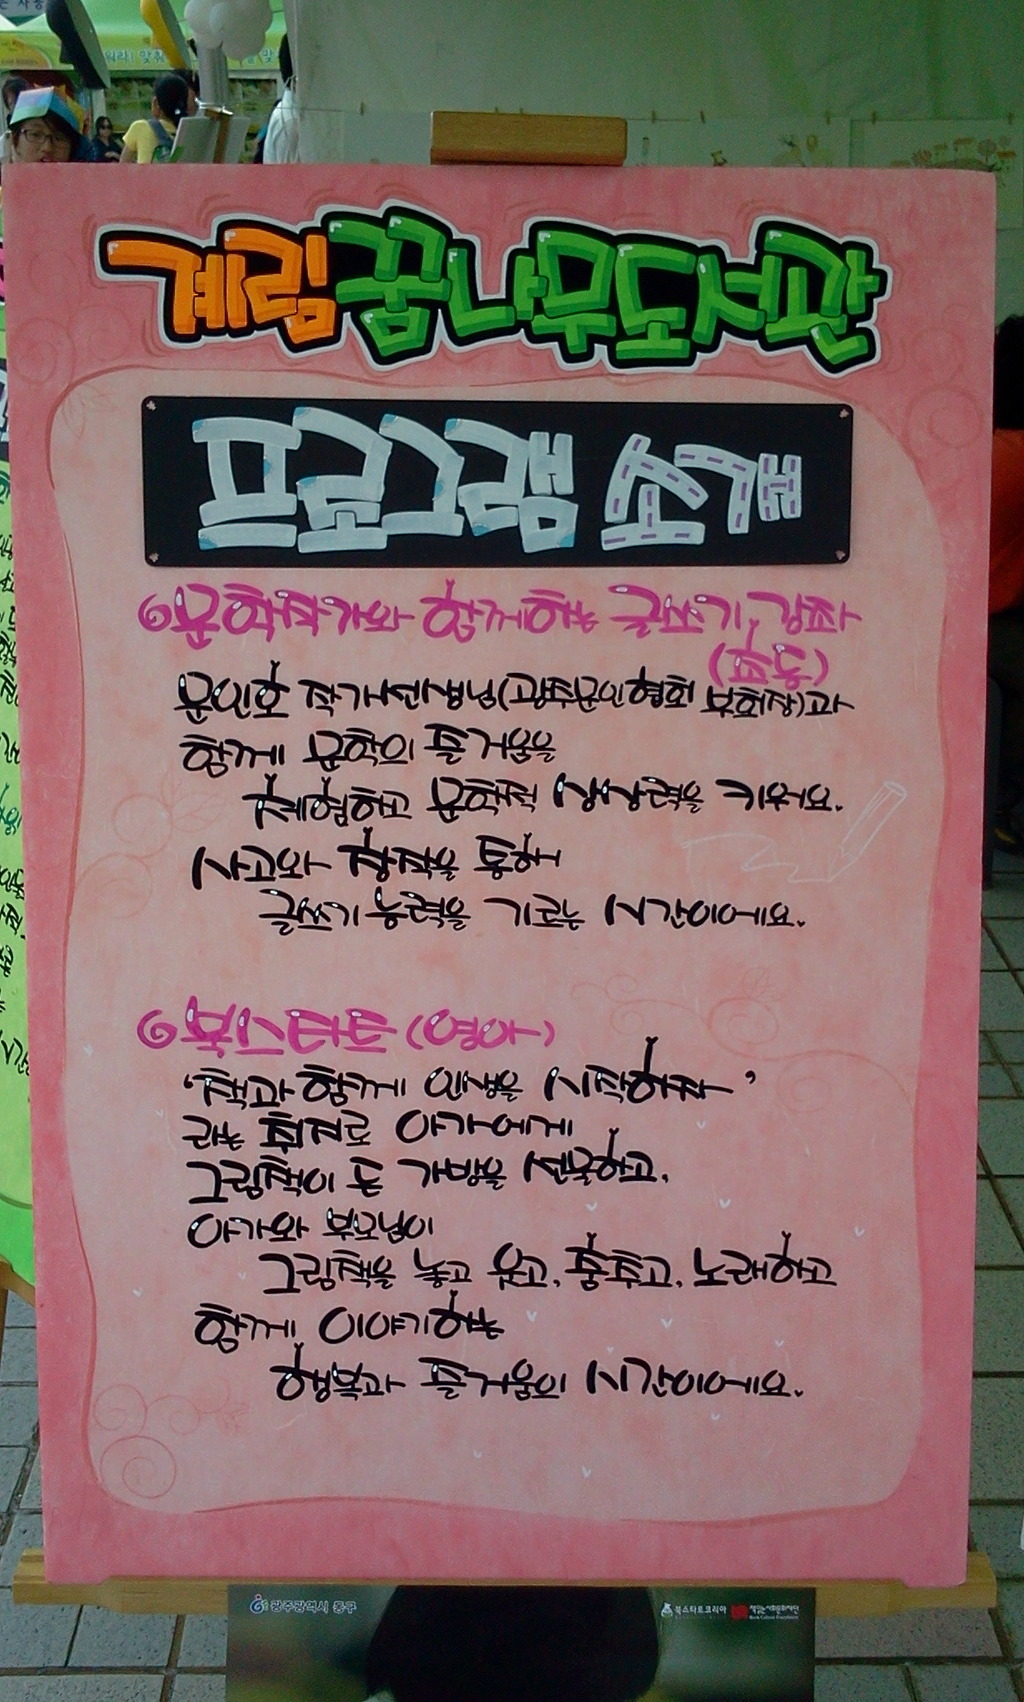 계림꿈나무도서관
프로그램 소개
문학작가와 함께하는 글쓰기 강좌
(초등)
문인호 작가선생님(광주문인협회 부회장)과
함께 문학의 즐거움을
체험하고 문학적 상상력을 키워요.
사고와 창작을 통해
글쓰기 능력을 기르는 시간이에요.
북스타트 (영아)
'책과 함께 인생을 시작하자'
라는 취지로 아가에게
그림책이 든 가방을 선물하고,
아가와 부모님이
그림책을 놓고 웃고, 춤추고, 노래하고
함께 이야기하는
행복과 즐거움의 시간이에요.
광주광역시 동구
북스타트코리아 책읽는사회문화재단